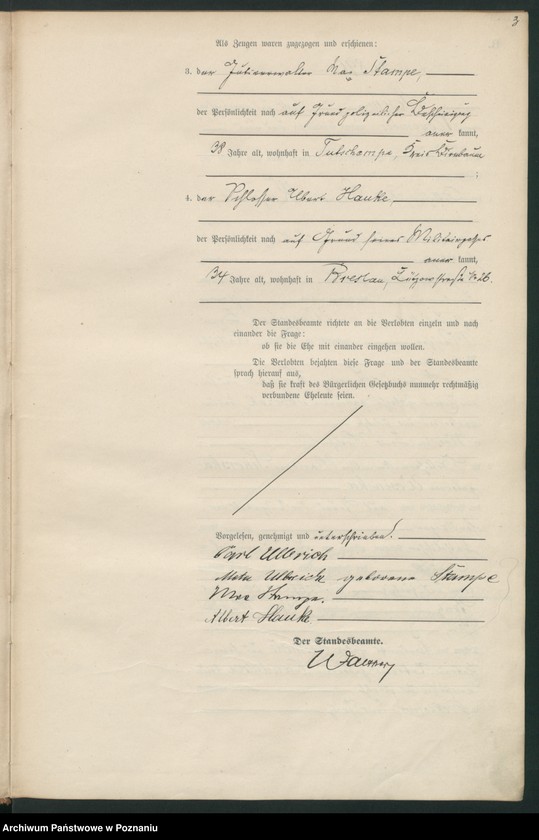 3
Als Zeugen waren zugezogen und erschienen:
3. der Max Stampe,
der Persönlichkeit nach auf Grund polizeilicher
kannt,
38 Jahre alt, wohnhaft in Kreis Birnbaum
;
4. der Schlosser Albert Hauke
der Persönlichkeit nach auf Grund seines Militairpasses
kannt,
34 Jahre alt, wohnhaft in Breslau,
Der Standesbeamte richtete an die Verlobten einzeln und nach
einander die Frage:
ob sie die Ehe mit einander eingehen wollen.
Die Verlobten bejahten diese Frage und der Standesbeamte
sprach hierauf aus,
daß sie kraft des Bürgerlichen Gesetzbuchs nunmehr rechtmäßig
verbundene Eheleute seien.
Vorgelesen, genehmigt und unterschrieben!
Carl Ulbrich
Meta Ulbrich geborene Stampe
Max Stampe.
Albert Hauke
Der Standesbeamte.
Archiwum Państwowe w Poznaniu